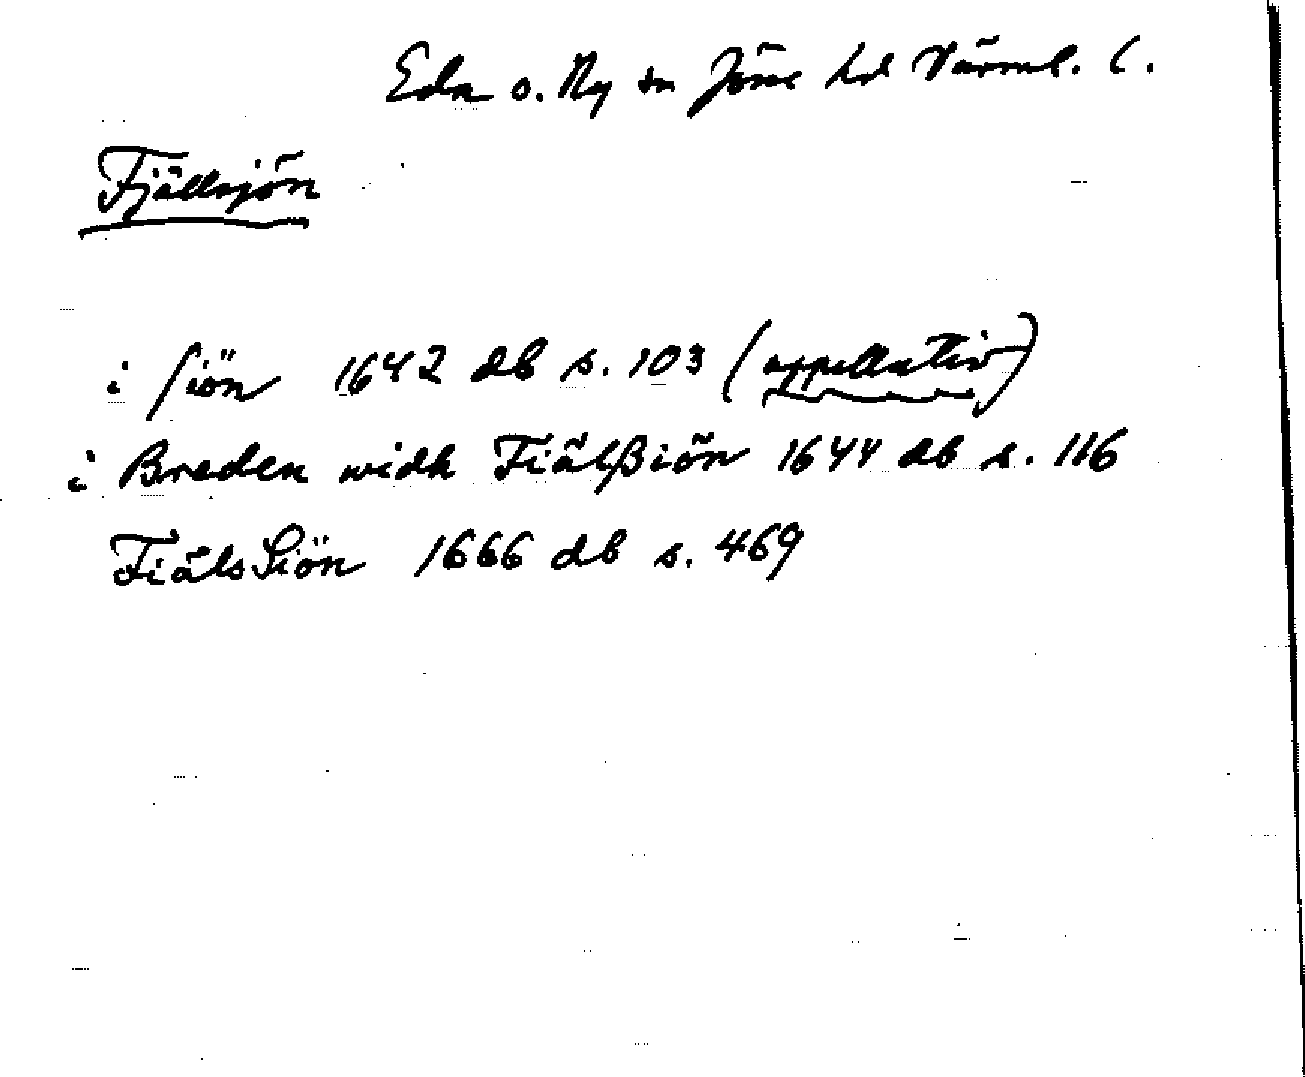 Eda o. Ny sn Jösse hd Värml. l.
Fjällsjön
i siön 1642 db s. 103 (appellativ)
i Breden widh Fiälßiön 1644 db s. 116
FiälsSiön 1666 db s. 469